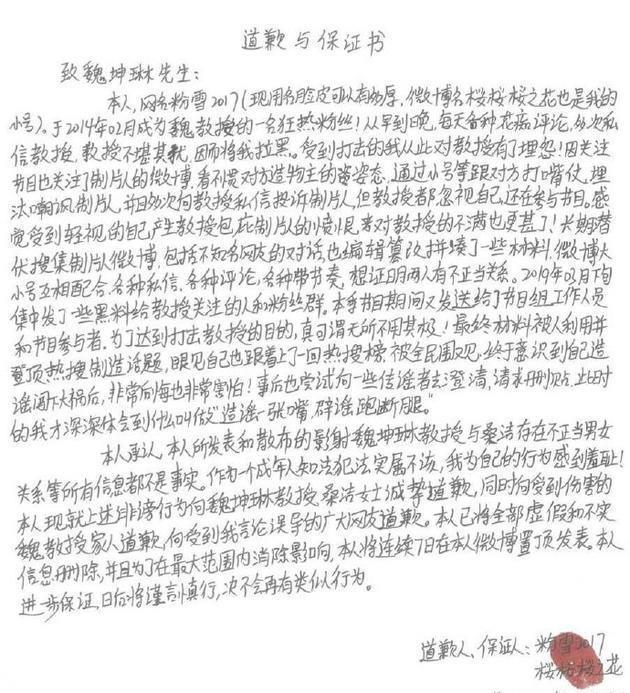 道歉与保证书
致魏坤琳先生：
本人，网名粉雪2017（现用名脸皮可以有多厚，微博名桜桜桜之花也是我的
小号）。于2014年02月成为魏教授的一名狂热粉丝！从早到晚，每天各种花痴评论，多次私
信教授，教授不堪其扰，因而将我拉黑。受到打击的我从此对教授有了埋怨！因关注
节目也关注了制片人的微博，看不惯对方造物主的姿态，通过小号等跟对方打嘴仗，埋
汰嘲讽制片人，并且多次向教授私信投诉制片人，但教授都忽视自己，还在参与节目。感
觉受到轻视的自己，产生教授包庇制片的愤恨，来对教授的不满也更甚了！长期替
伏搜集制片人微博，包括不知名网友的对话，也编辑篡改拼凑了一些材料，微博大
小号互相配合，各种私信，各种评论，各种带节奏，想证明两人有不正当关系。2019年02月下旬
集中发了一些黑料给教授关注的人和粉丝群。本季节目期间又发送给了节目组工作人员
和节目参与者，为了达到打击教授的目的，真可谓无所不用其极！最终材料被人利用并
登顶热搜制造话题，眼见自己也跟着上了一回热搜榜，被全民围观，终于意识到自己造
谣闯下大祸后，非常后悔也非常害怕！事后也尝试向一些信谣者去澄清，请求删贴，此时
的我才深深体会到什么叫做“造谣一张嘴，辟谣跑断腿。”
本人承认，本人所发表和散布的影射魏坤琳教授与桑洁存在不正当男女
关系等所有信息都不是事实。作为一个成年人知法犯法实属不该，我为自己的行为感到羞耻！
本人现就上述诽谤行为向魏坤琳教授、桑洁女士诚挚道歉，同时向受到伤害的
魏教授家人道歉，向受到我言论误导的广大网友道歉。本人已将全部虚假和不实
信息删除，并且为了在最大范围内消除影响，本人将连续7日在本人微博置顶发表。本人
进步保证，日后将谨言慎行，决不会再有类似行为。
道歉人、保证人：粉雪2017
桜桜桜之花